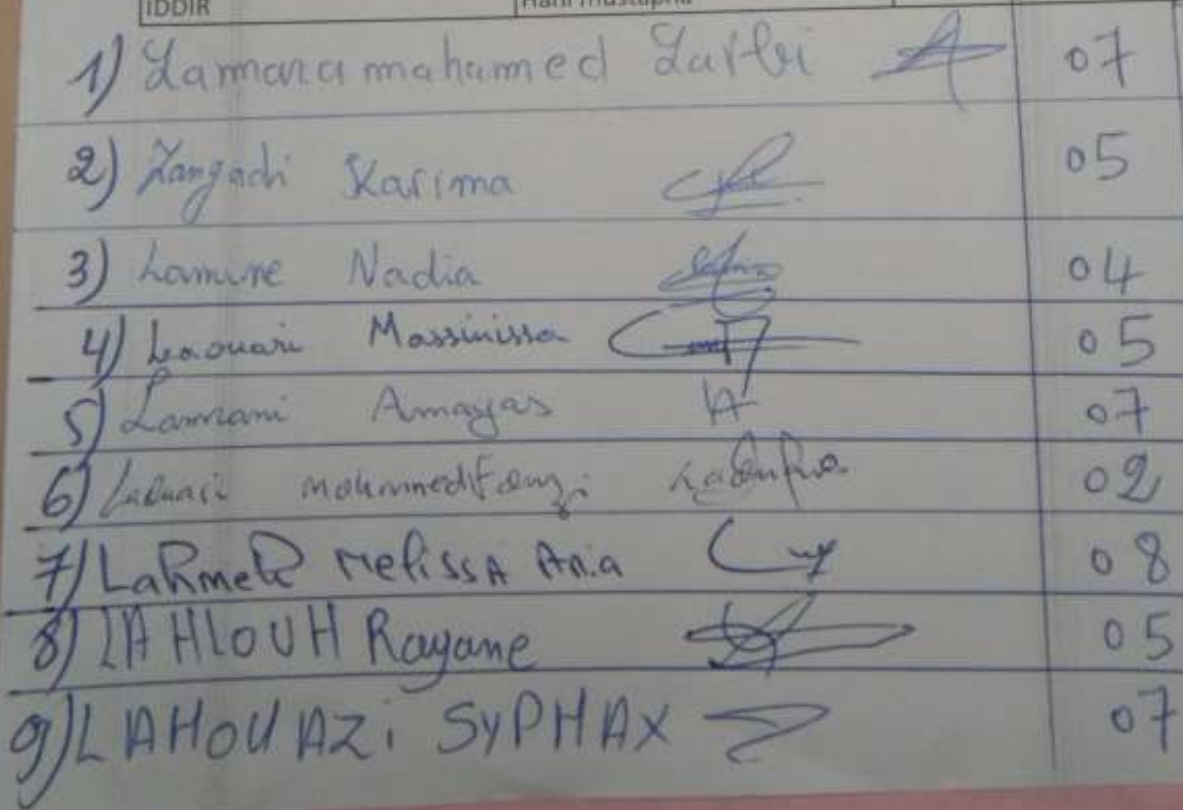 IDDIR Hani Mustapha
1) Lamara mahamed Larbi 07
2) Zangadi Karima 05
3) Lamine Nadia 04
4) Laouari Massinissa 05
5) Lamrani Amayas 07
6) Laouari mohammed 02
7) LahmeR MelissA Ania 08
8) LAHLOUH Rayane 05
9) LAHOUAZi SyPHAX 07